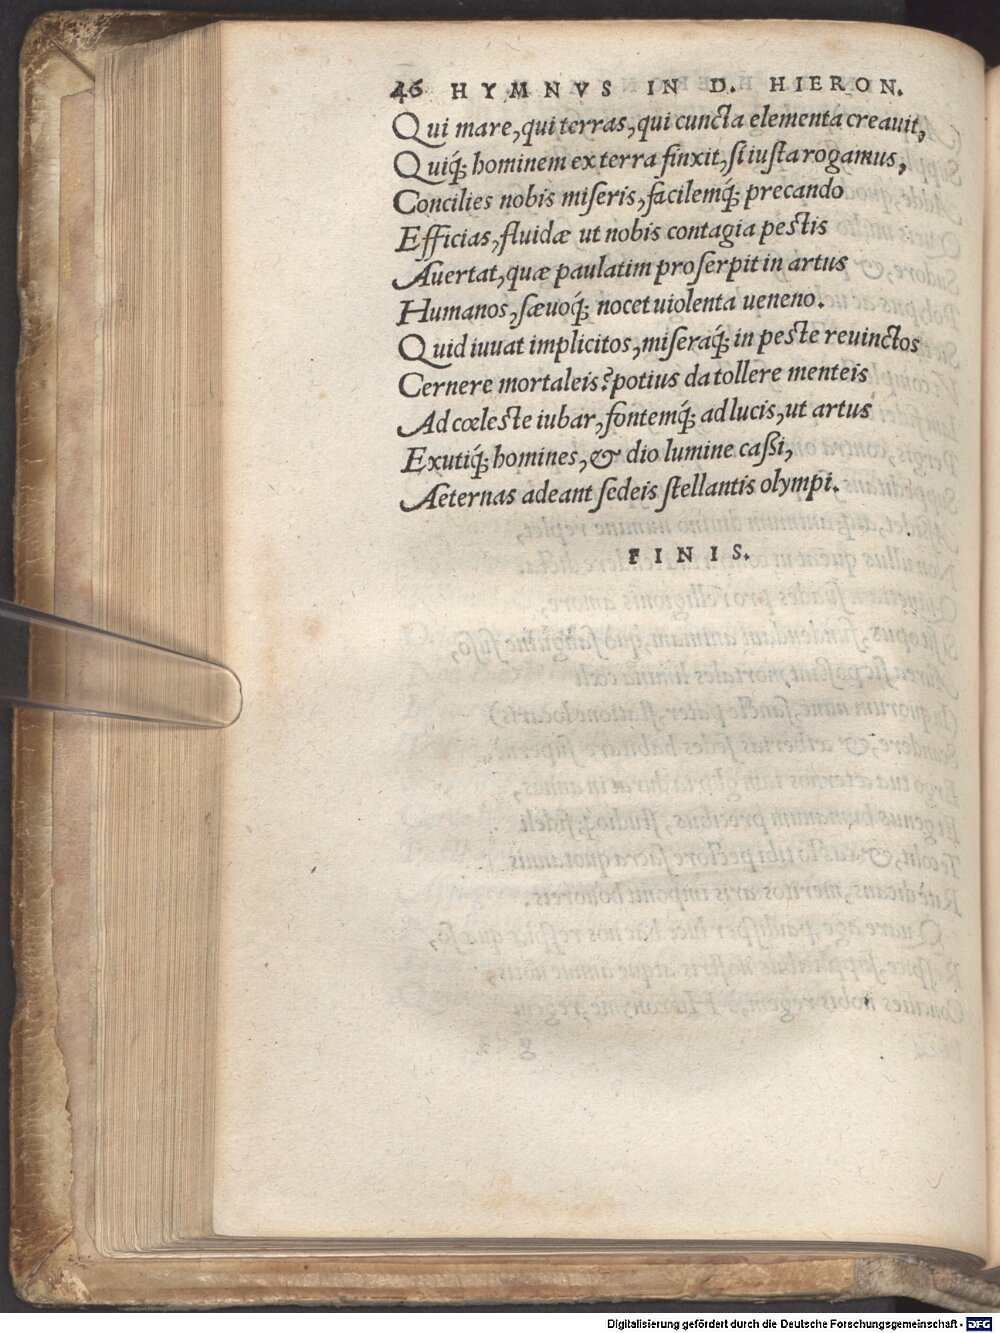 46 HYMNVS IN D. HIERON.
Qui mare, qui terras, qui cuncta elementa creauit,
Quiq́; hominem ex terra finxit, si iusta rogamus,
Concilies nobis miseris, facilemq́; precando
Efficias, fluidæ ut nobis contagia pestis
Auertat, quæ paulatim proserpit in artus
Humanos, sæuoq́; nocet uiolenta ueneno.
Quid iuuat implicitos, miseraq́; in peste reuinctos
Cernere mortaleis? potius da tollere menteis
Ad cœleste iubar, fontemq́; ad lucis, ut artus
Exutiq́; homines, & dio lumine caßi,
Aeternas adeant sedeis stellantis olympi.
FINIS.
Digitalisierung gefördert durch die Deutsche Forschungsgemeinschaft - DFG